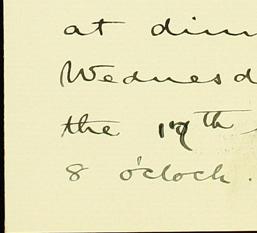 at dinn
Wednesd
the 17th
8 o'clock.